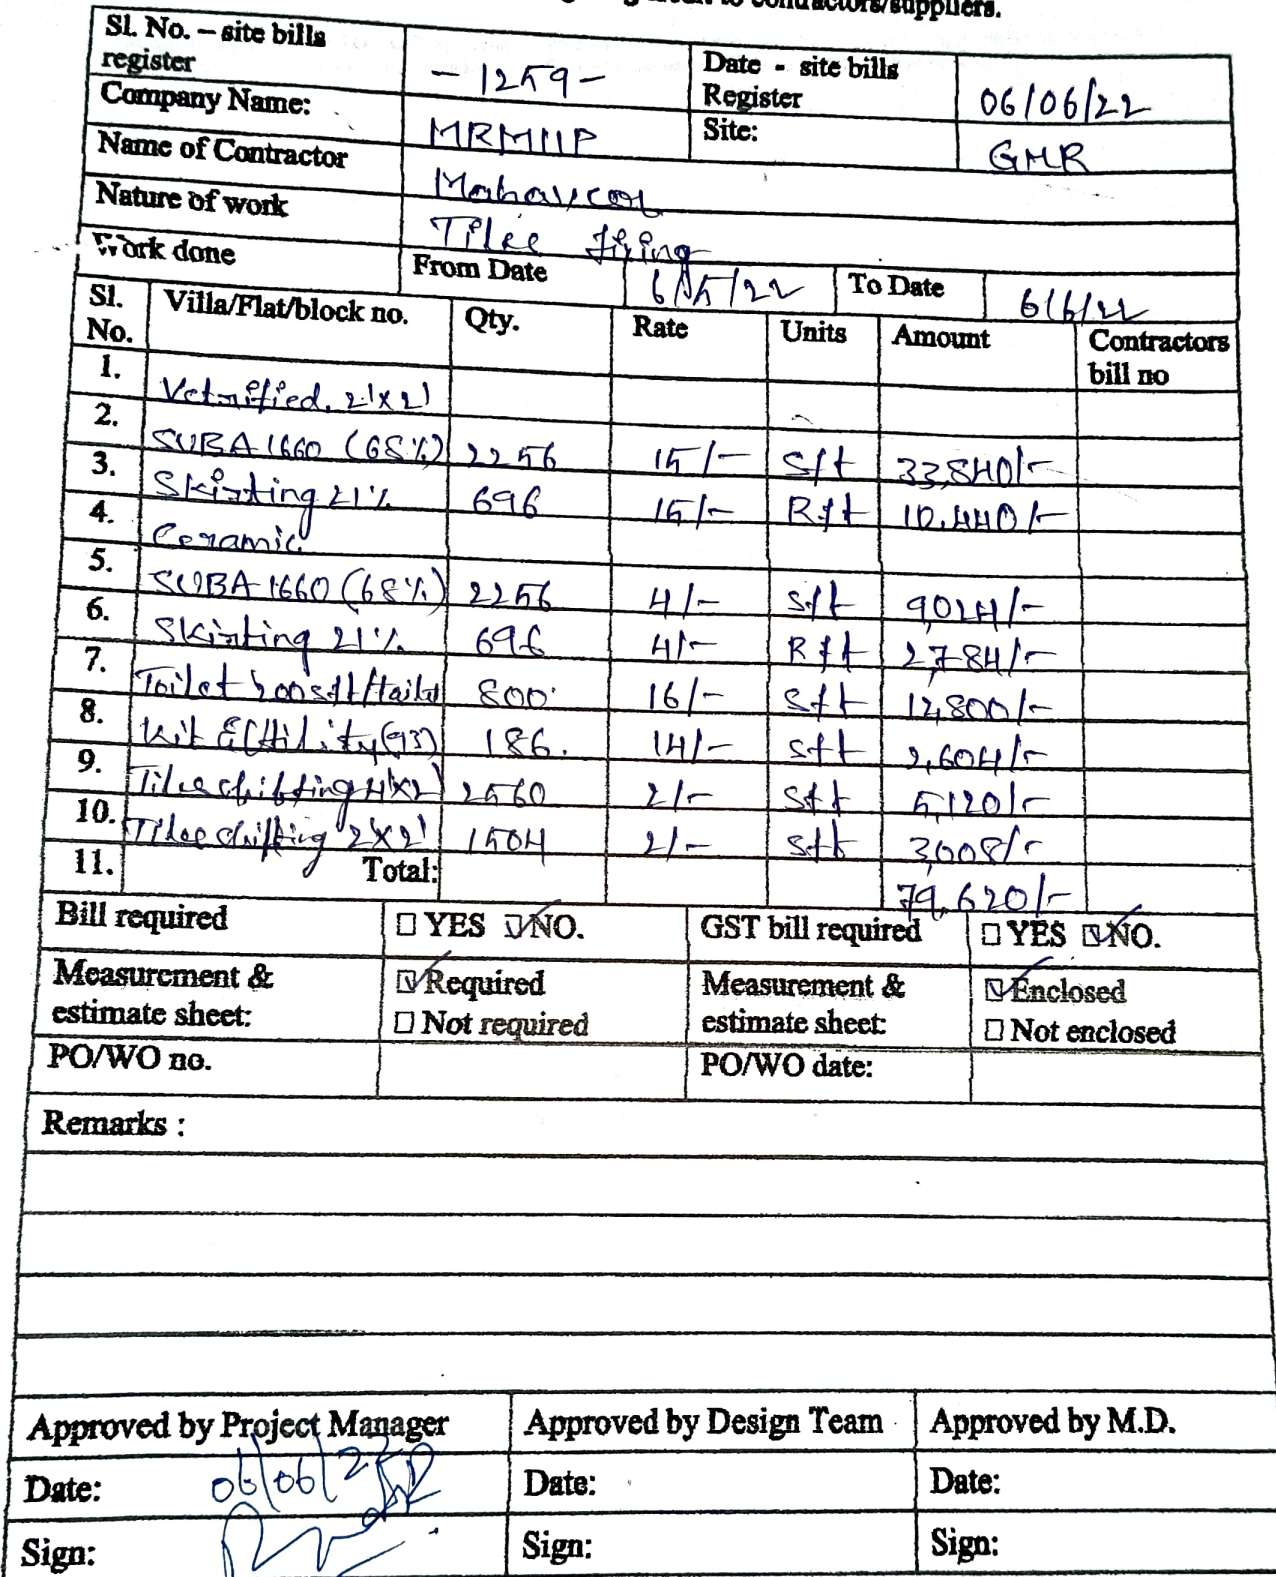 contractors/suppliers.
Sl. No. – site bills register - 1259 - Date - site bills Register 06/06/22
Company Name: MRMIIP Site: GMR
Name of Contractor
Nature of work Tiles fixing
Work done From Date 6/5/22 To Date 6/6/22
Sl. No. Villa/Flat/block no. Qty. Rate Units Amount Contractors bill no
1. Vetrified 2'x2'
2. SUBA 1660 (68%) 2256 15/- Sft 33,840/-
3. Skirting 21% 696 15/- Rft 10,440/-
4. Ceramic
5. SUBA 1660 (68%) 2256 4/- Sft 9,024/-
6. Skirting 21% 696 4/- Rft 2,784/-
7. Toilet 800 16/- Sft 12,800/-
8. Kit & Utility (93) 186. 14/- Sft 2,604/-
9. Tiles shifting 4'x2' 2560 2/- Sft 5,120/-
10. Tiles shifting 2'x2' 1504 2/- Sft 3,008/-
11. Total: 79,620/-
Bill required ☐ YES ☑ NO. GST bill required ☐ YES ☑ NO.
Measurement & estimate sheet: ☑ Required ☐ Not required Measurement & estimate sheet: ☑ Enclosed ☐ Not enclosed
PO/WO no. PO/WO date:
Remarks :
Approved by Project Manager Approved by Design Team Approved by M.D.
Date: 06/06/22 Date: Date:
Sign: Sign: Sign: